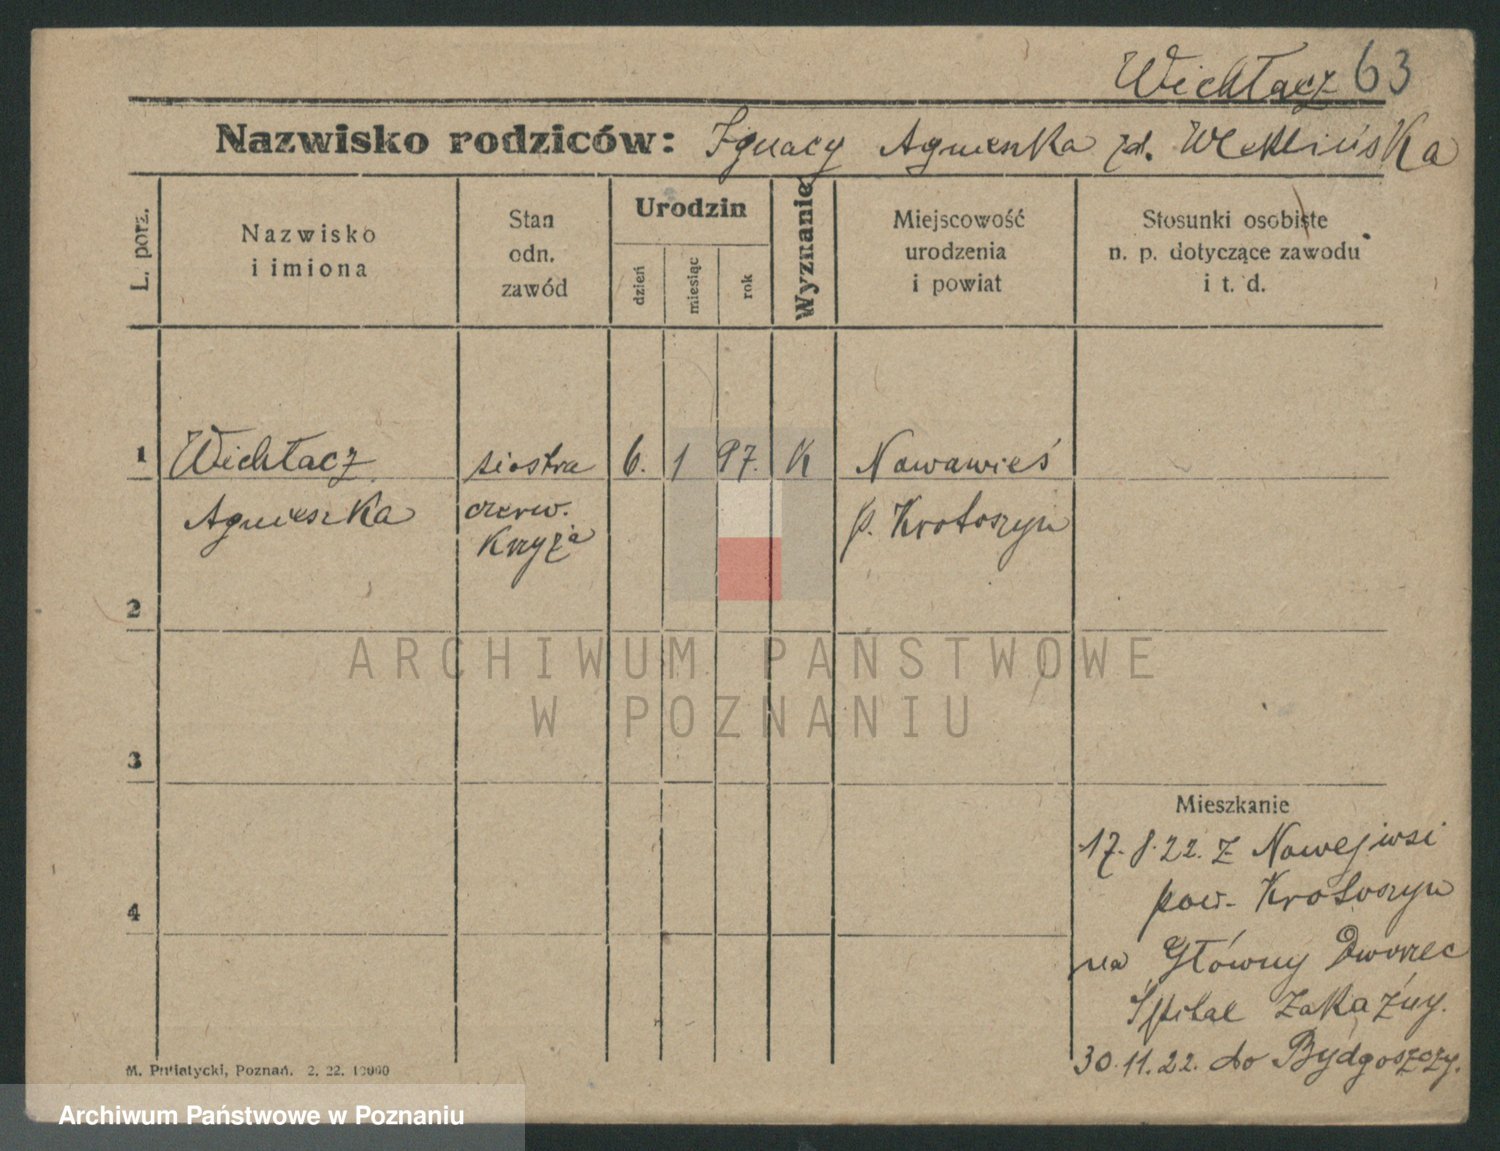 Wichłacz 63
Nazwisko rodziców: Ignacy Agnieszka zd.
L. porz.
Nazwisko
i imiona
Stan
odn.
zawód
Urodzin
dzień
miesiąc
rok
Wyznanie
Miejscowość
urodzenia
i powiat
Stosunki osobiste
n. p. dotyczące zawodu
i t. d.
1 Wichłacz siostra 6. 1 97. K Nowawieś
Agnieszka czerw. p. Krotoszyn
Krzyża
2
ARCHIWUM PAŃSTWOWE
W POZNANIU
3
Mieszkanie
17. 8. 22. z Nowejwsi
pow. Krotoszyn
4
na Główny Dworzec
Szpital Zakaźny.
30.11.22. do Bydgoszczy.
M. Putiatycki, Poznań. 2. 22. 10000
Archiwum Państwowe w Poznaniu